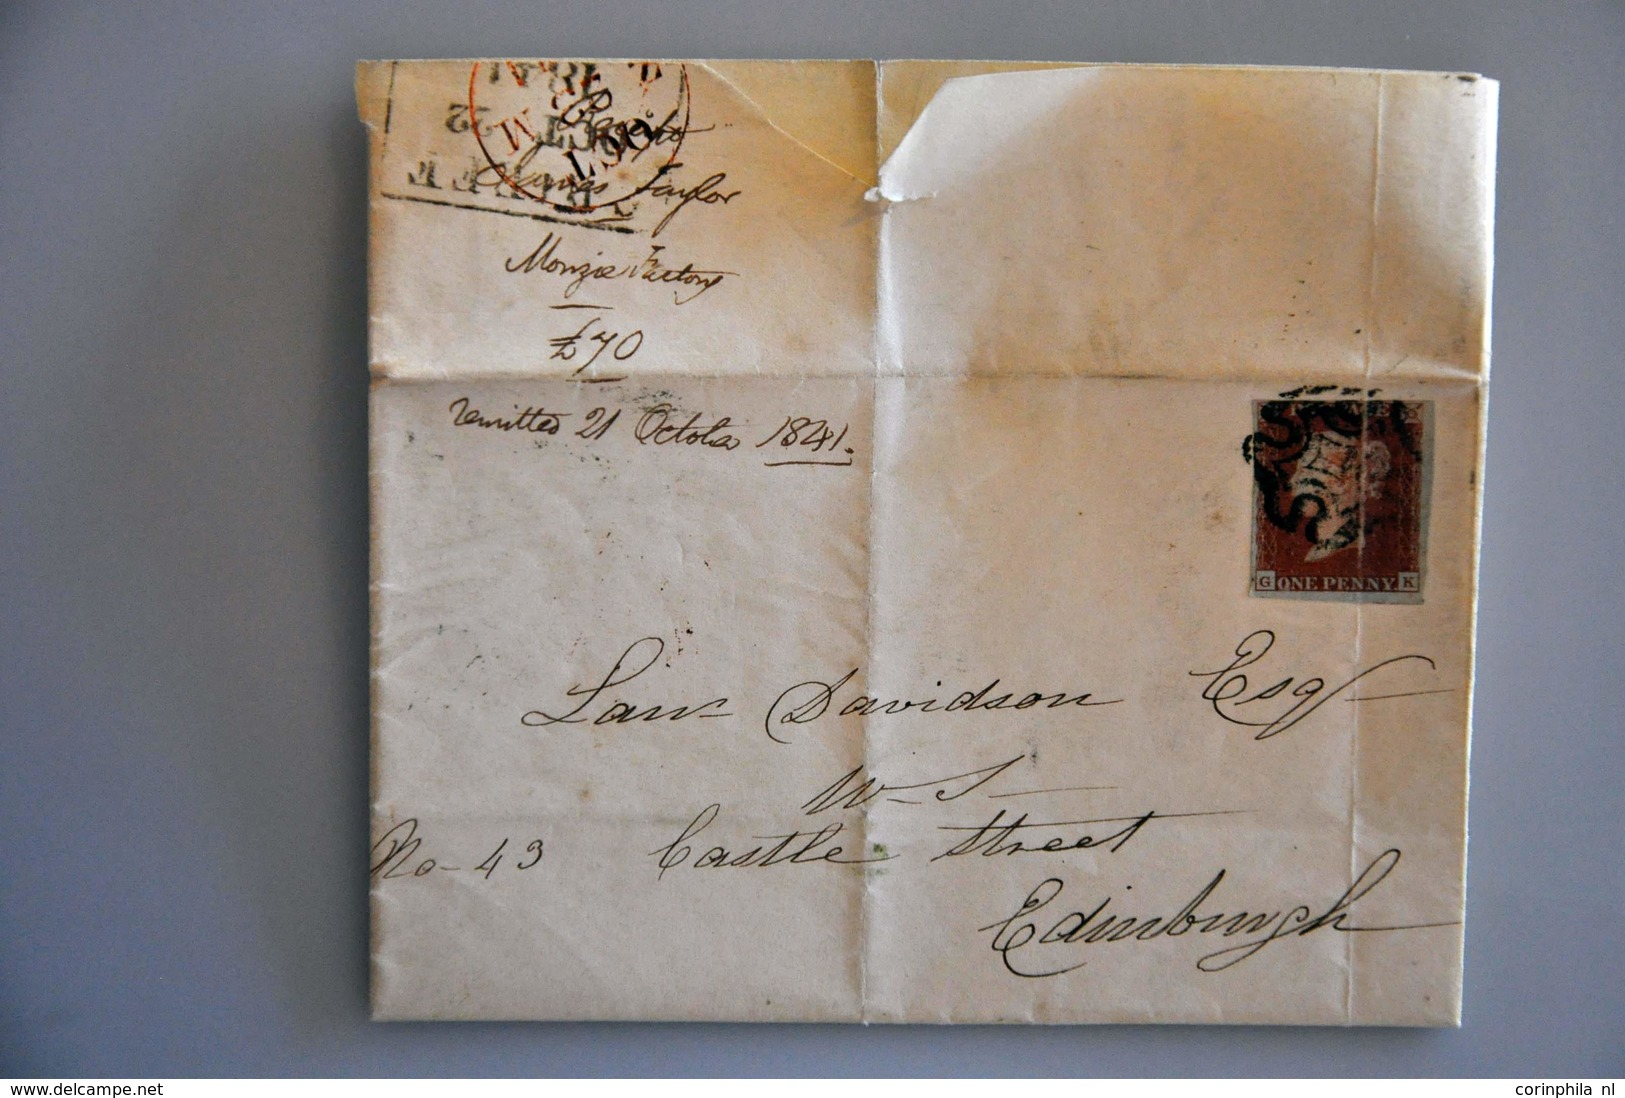 22
OCT
OCT
Receipt
James Taylor
Monzie Factory
£70
remitted 21 October 1841.
G ONE PENNY. K
Lawr Davidson Esqr
W. S.
No - 43 Castle Street
Edinburgh
www.delcampe.net
corinphila nl